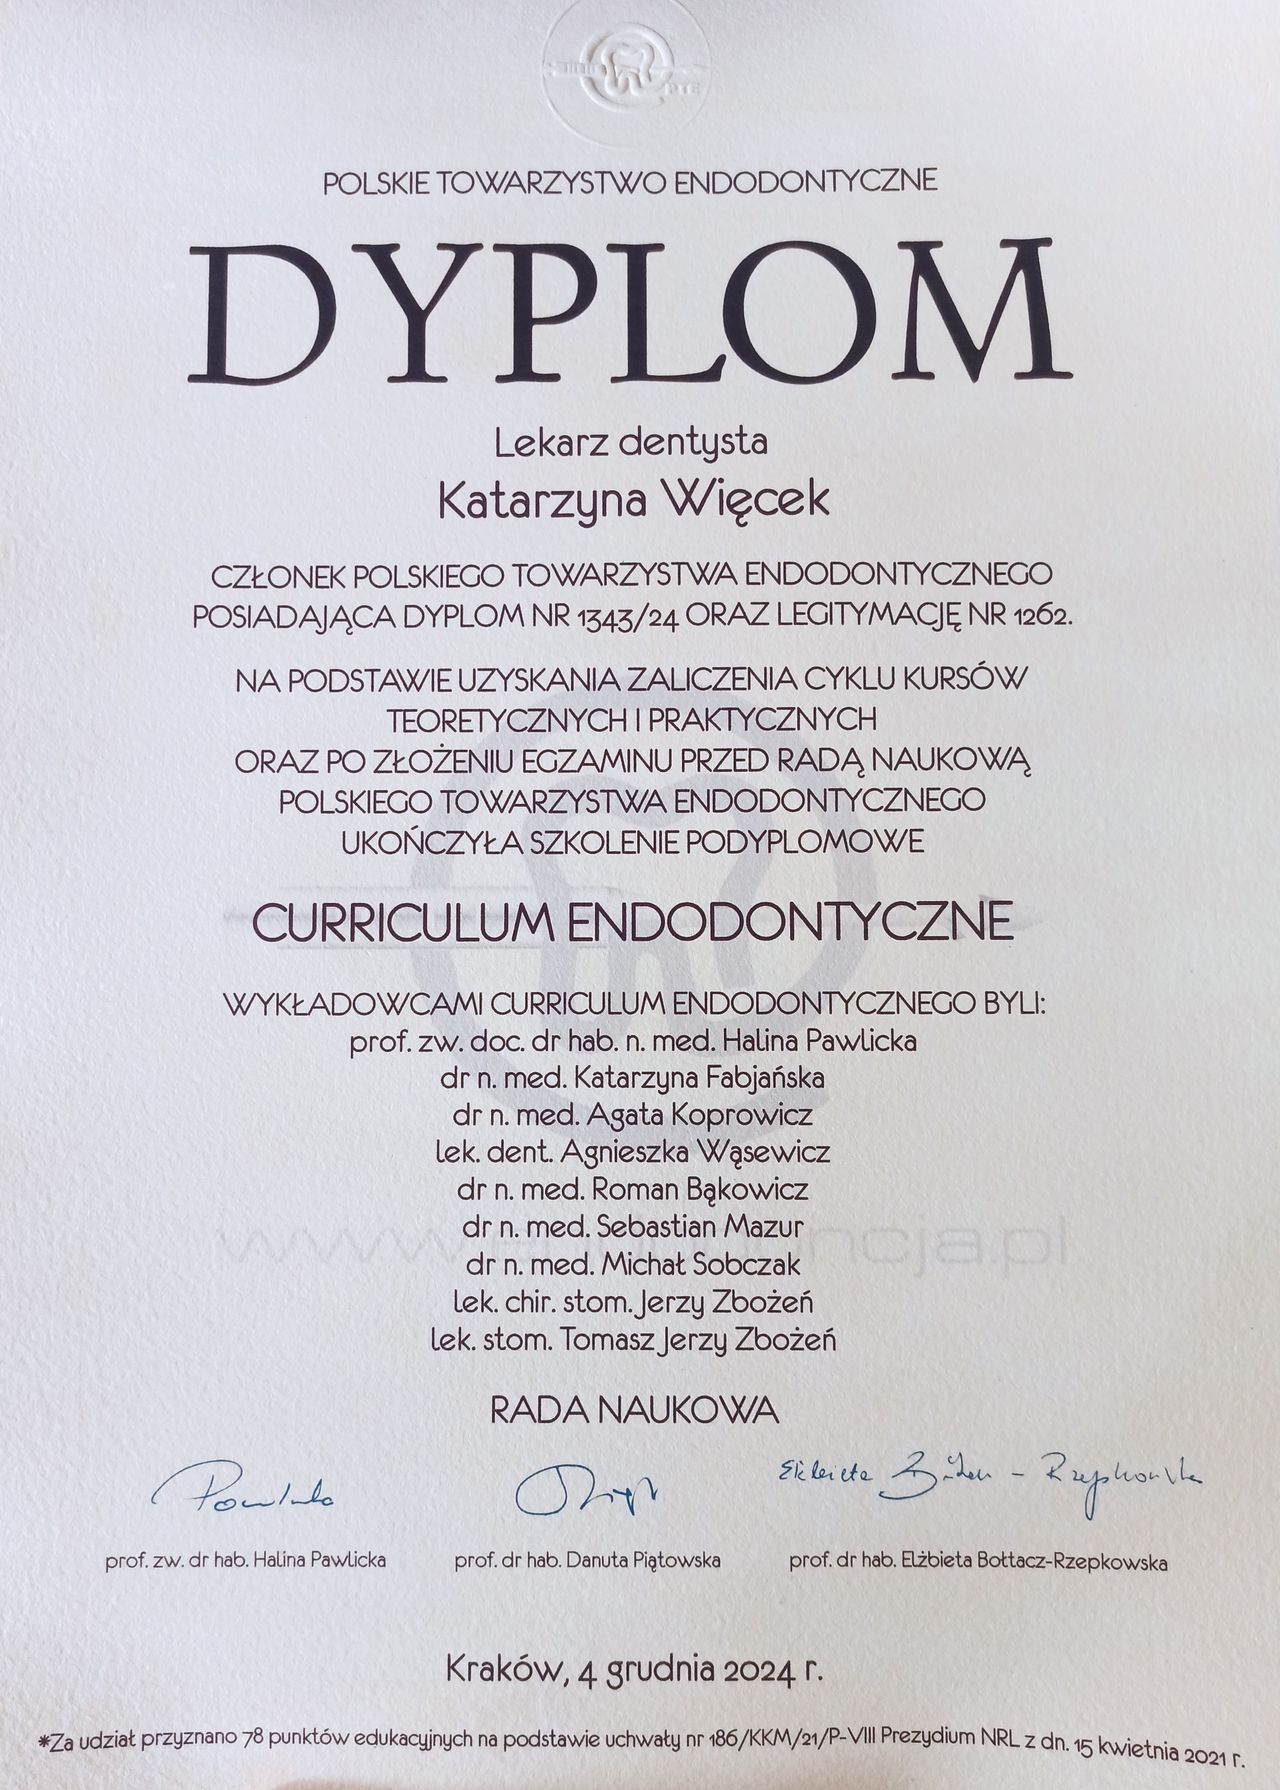 PTE
POLSKIE TOWARZYSTWO ENDODONTYCZNE
DYPLOM
Lekarz dentysta
Katarzyna Więcek
CZŁONEK POLSKIEGO TOWARZYSTWA ENDODONTYCZNEGO
POSIADAJĄCA DYPLOM NR 1343/24 ORAZ LEGITYMACJĘ NR 1262.
NA PODSTAWIE UZYSKANIA ZALICZENIA CYKLU KURSÓW
TEORETYCZNYCH I PRAKTYCZNYCH
ORAZ PO ZŁOŻENIU EGZAMINU PRZED RADĄ NAUKOWĄ
POLSKIEGO TOWARZYSTWA ENDODONTYCZNEGO
UKOŃCZYŁA SZKOLENIE PODYPLOMOWE
CURRICULUM ENDODONTYCZNE
WYKŁADOWCAMI CURRICULUM ENDODONTYCZNEGO BYLI:
prof. zw. doc. dr hab. n. med. Halina Pawlicka
dr n. med. Katarzyna Fabjańska
dr n. med. Agata Koprowicz
lek. dent. Agnieszka Wąsewicz
dr n. med. Roman Bąkowicz
dr n. med. Sebastian Mazur
dr n. med. Michał Sobczak
lek. chir. stom. Jerzy Zbożeń
lek. stom. Tomasz Jerzy Zbożeń
RADA NAUKOWA
prof. zw. dr hab. Halina Pawlicka prof. dr hab. Danuta Piątowska prof. dr hab. Elżbieta Bołtacz-Rzepkowska
Kraków, 4 grudnia 2024 r.
*Za udział przyznano 78 punktów edukacyjnych na podstawie uchwały nr 186/KKM/21/P-VIII Prezydium NRL z dn. 15 kwietnia 2021 r.